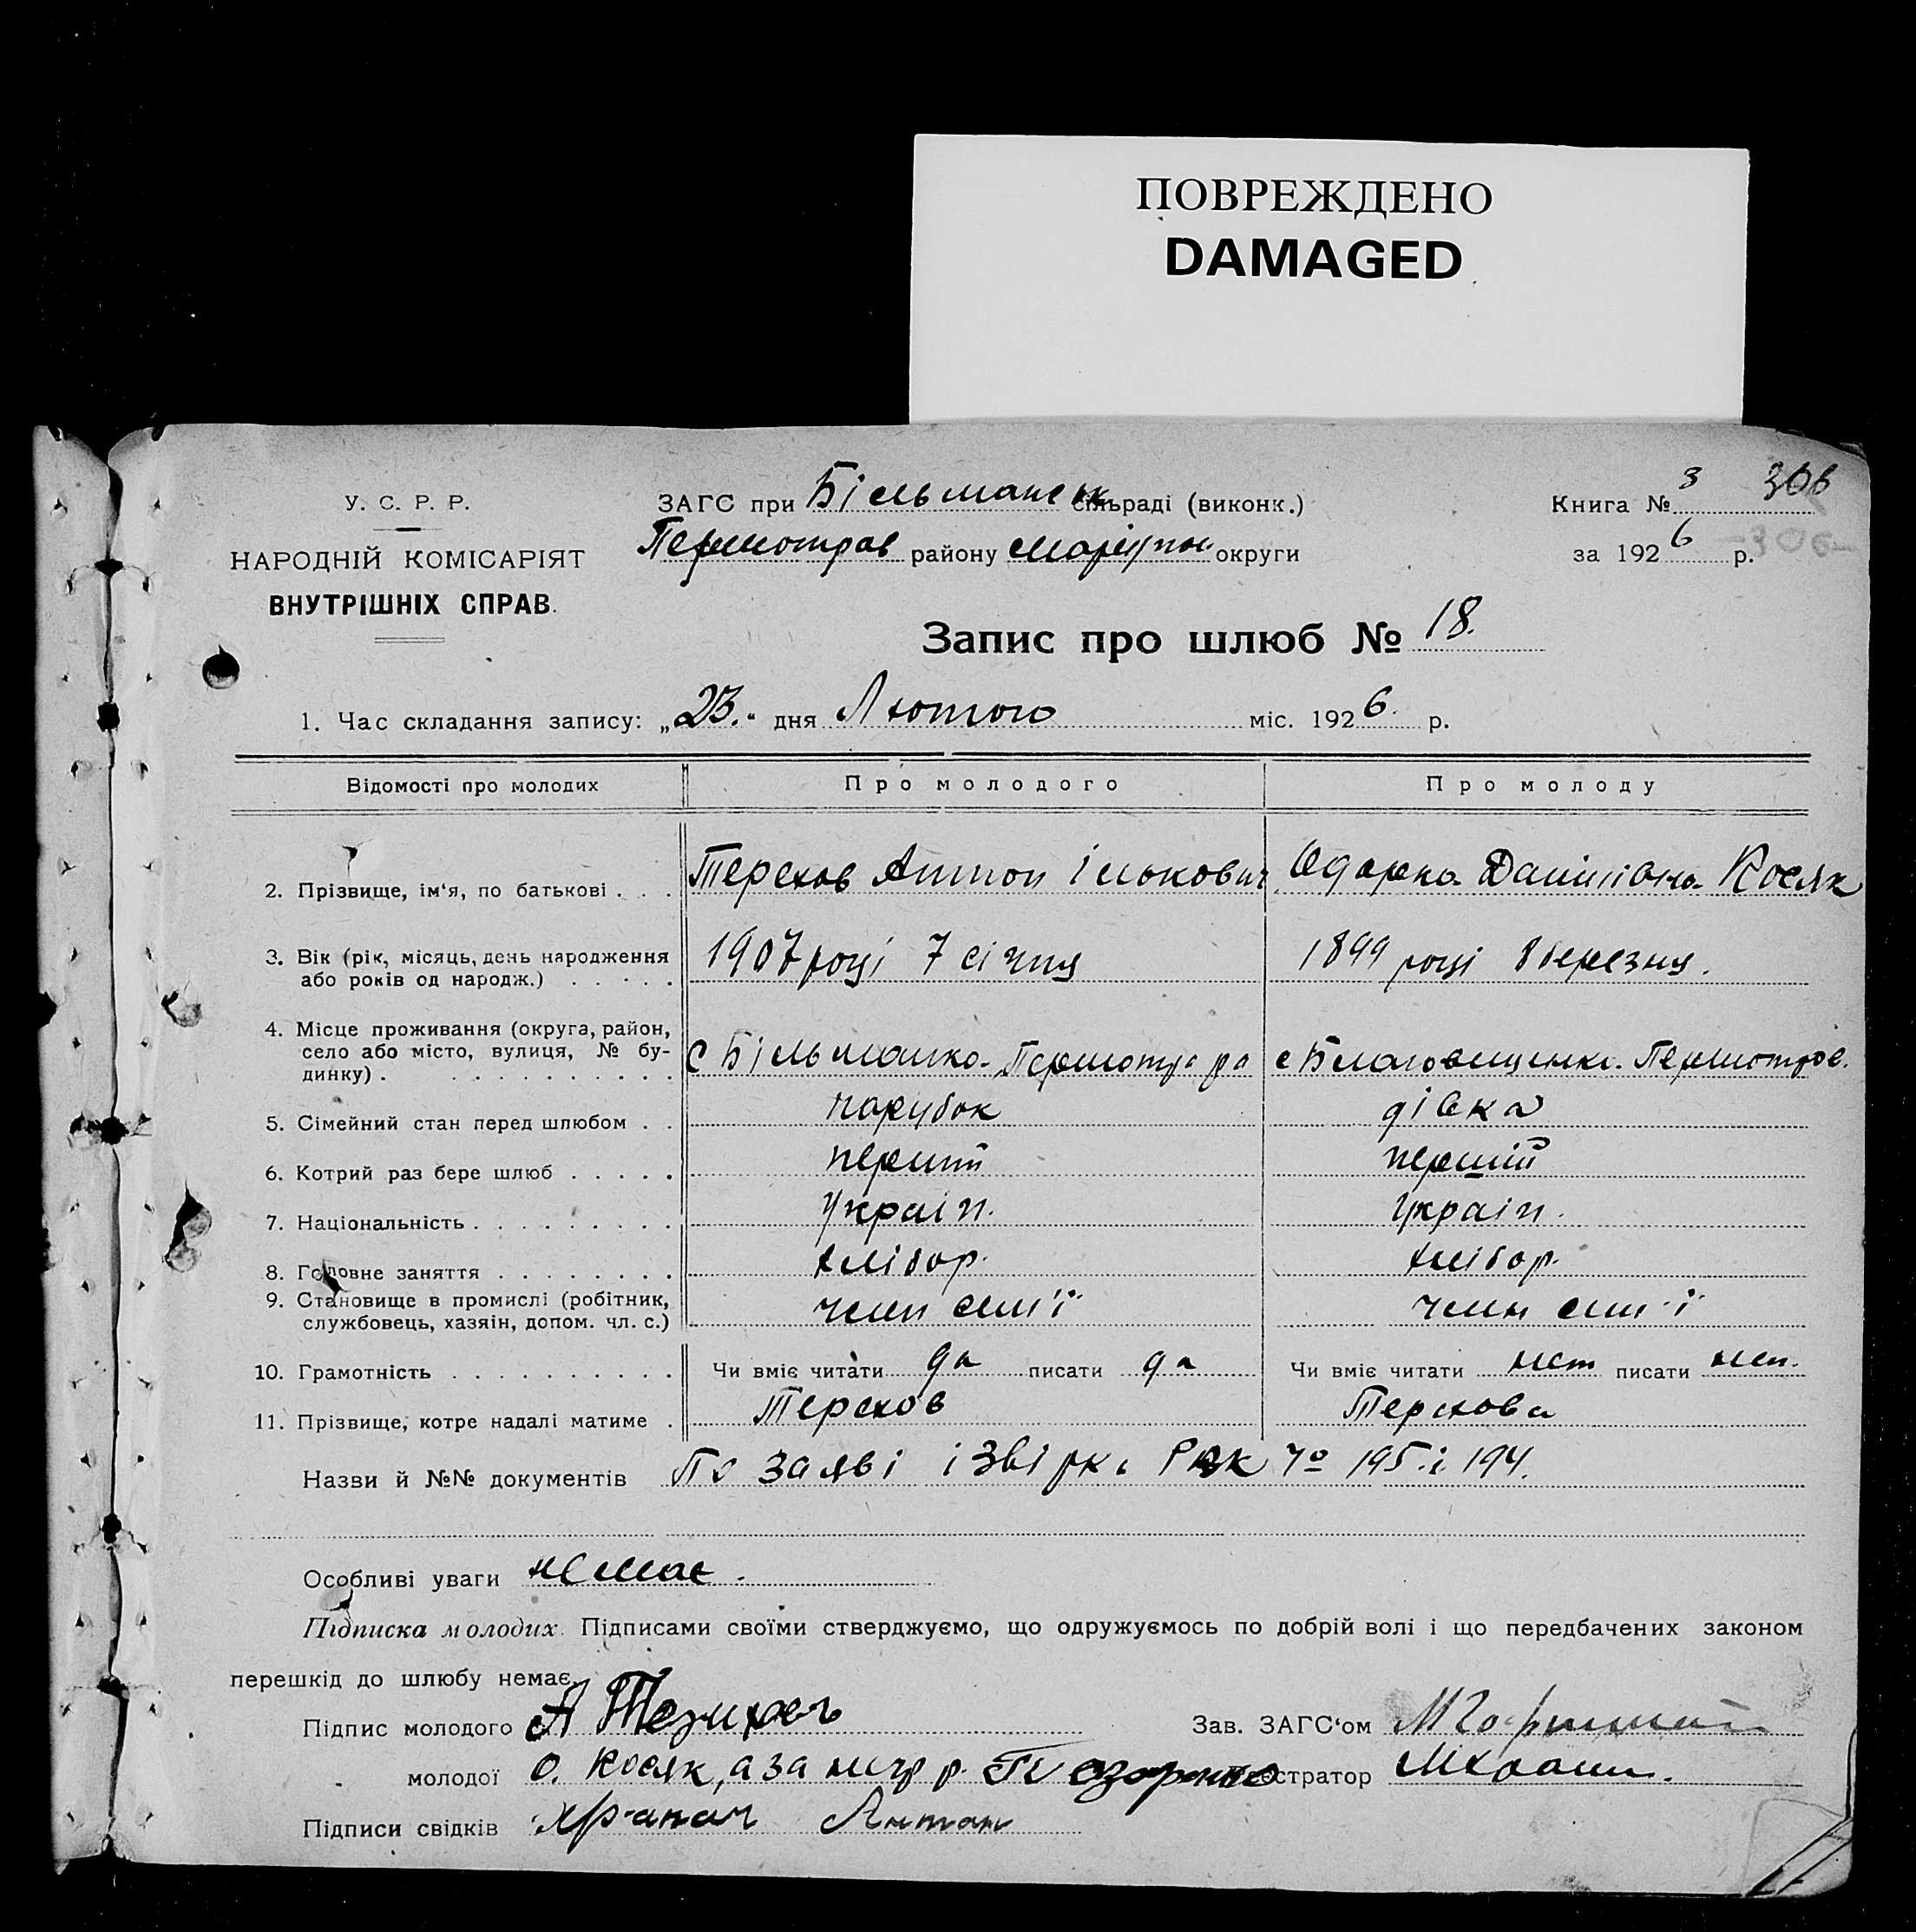 ПОВРЕЖДЕНО
DAMAGED
У. С. Р. Р.
НАРОДНІЙ КОМІСАРІЯТ
ВНУТРІШНІХ СПРАВ.
ЗАГС при Більманськ сільраді (виконк.)
Першотрав району Маріупол округи
Книга № 3 306
за 1926 р. -306-
Запис про шлюб № 18.
1. Час складання запису: „23.“ дня Лютого міс. 1926. р.
Відомості про молодих Про молодого Про молоду
2. Прізвище, ім'я, по батькові . . . Терехов АнтонІлькович Одарка Данилівна Косяк
3. Вік (рік, місяць, день народження або років од народж.) . . . . . 1907 році 7 січня 1899 році 8 березня.
4. Місце проживання (округа, район, село або місто, вулиця, № будинку) . с Більманка Першотр ра с Благовищенка. Першотров.
5. Сімейний стан перед шлюбом . . парубок дівка
6. Котрий раз бере шлюб . . . . . перший перший
7. Національність . . . . . . . . . Україн. Україн.
8. Головне заняття . . . . . . . . хлібор. хлібор.
9. Становище в промислі (робітник, службовець, хазяін, допом. чл. с.) член сим'ї член сим'ї
10. Грамотність . . . . . . . . . . Чи вміє читати да писати да Чи вміє читати нет писати нет.
11. Прізвище, котре надалі матиме . Терехов Терехова
Назви й №№ документів По заяві і звірк. 195 і 194.
Особливі уваги немає.
Підписка молодих. Підписами своїми стверджуємо, що одружуємось по добрій волі і що передбачених законом
перешкід до шлюбу немає.
Підпис молодого А Зав. ЗАГС'ом
молодої О. Косяк, а за негр р. Регістратор
Підписи свідків Антон